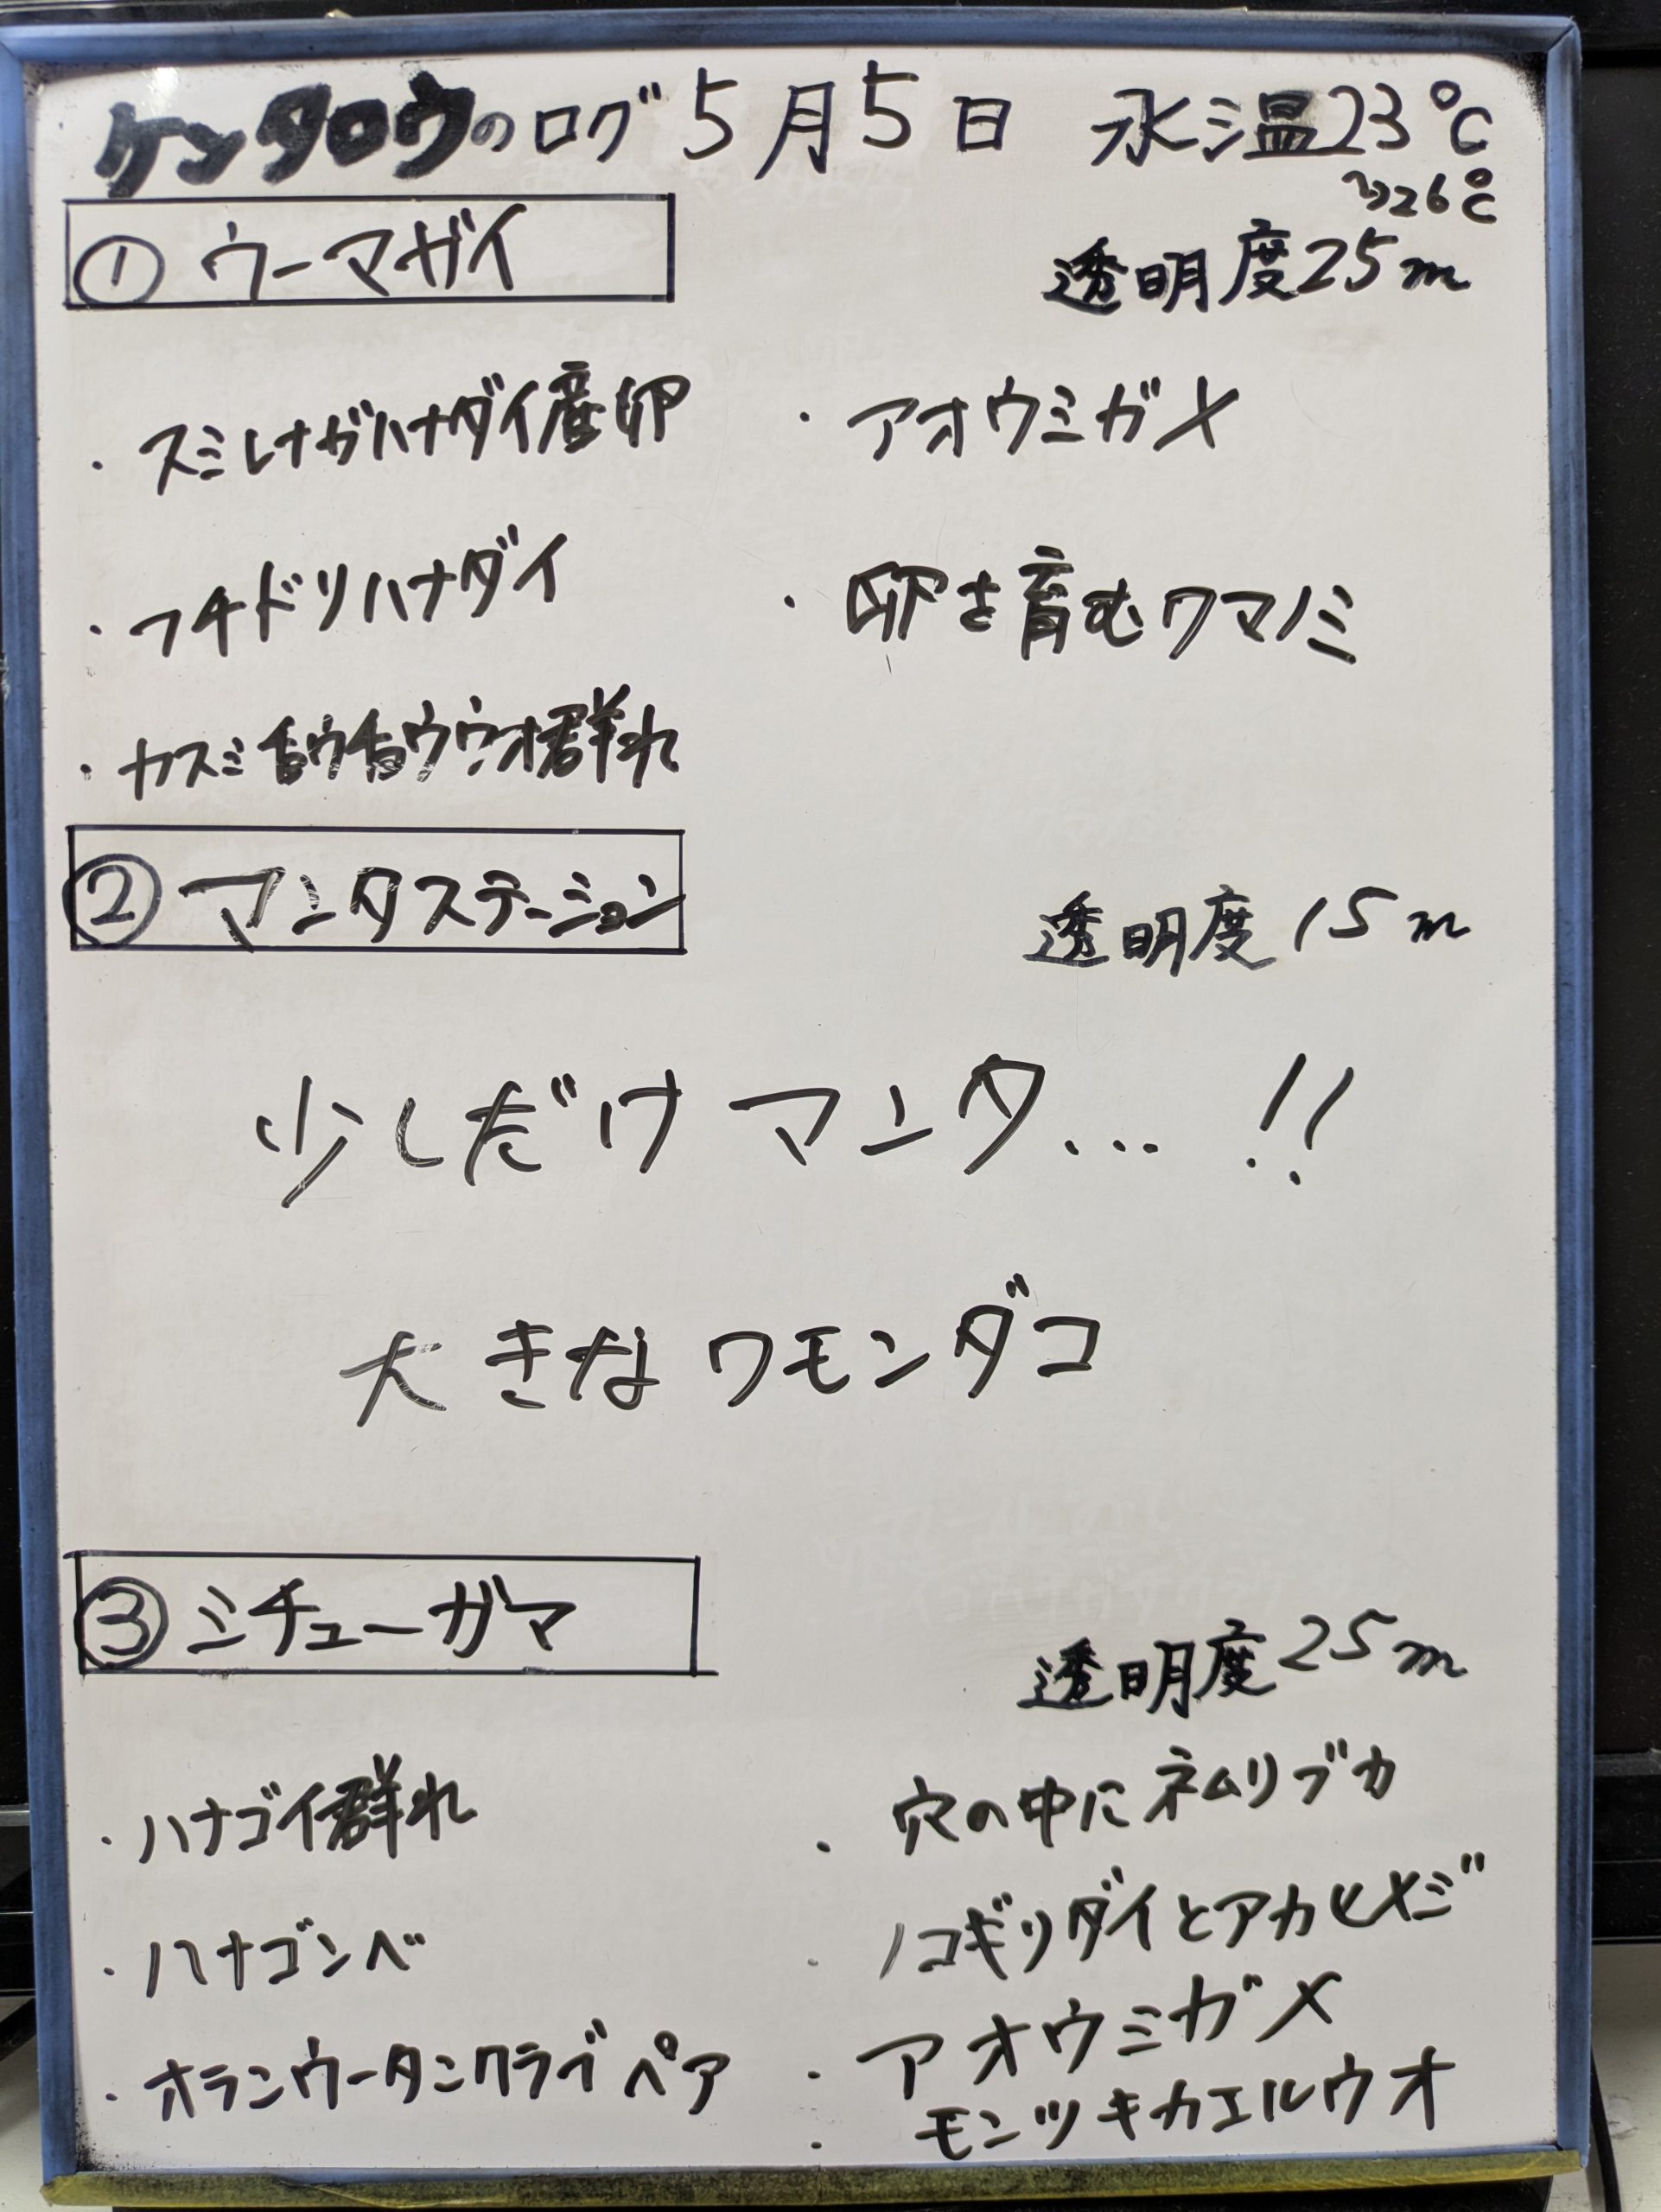 ケンタロウのログ 5月5日 水温23℃
〜26℃
① ウーマガイ
透明度25m
・スミレナガハナダイ産卵
・フチドリハナダイ
・カスミチョウチョウウオ群れ
・アオウミガメ
・卵を育むクマノミ
② マンタステーション
透明度15m
少しだけマンタ...!!
大きなワモンダコ
③ ミチューガマ
透明度25m
・ハナゴイ群れ
・ハナゴンベ
・オランウータンクラブペア
・穴の中にネムリブカ
・ノコギリダイとアカヒメジ
・アオウミガメ
・モンツキカエルウオ